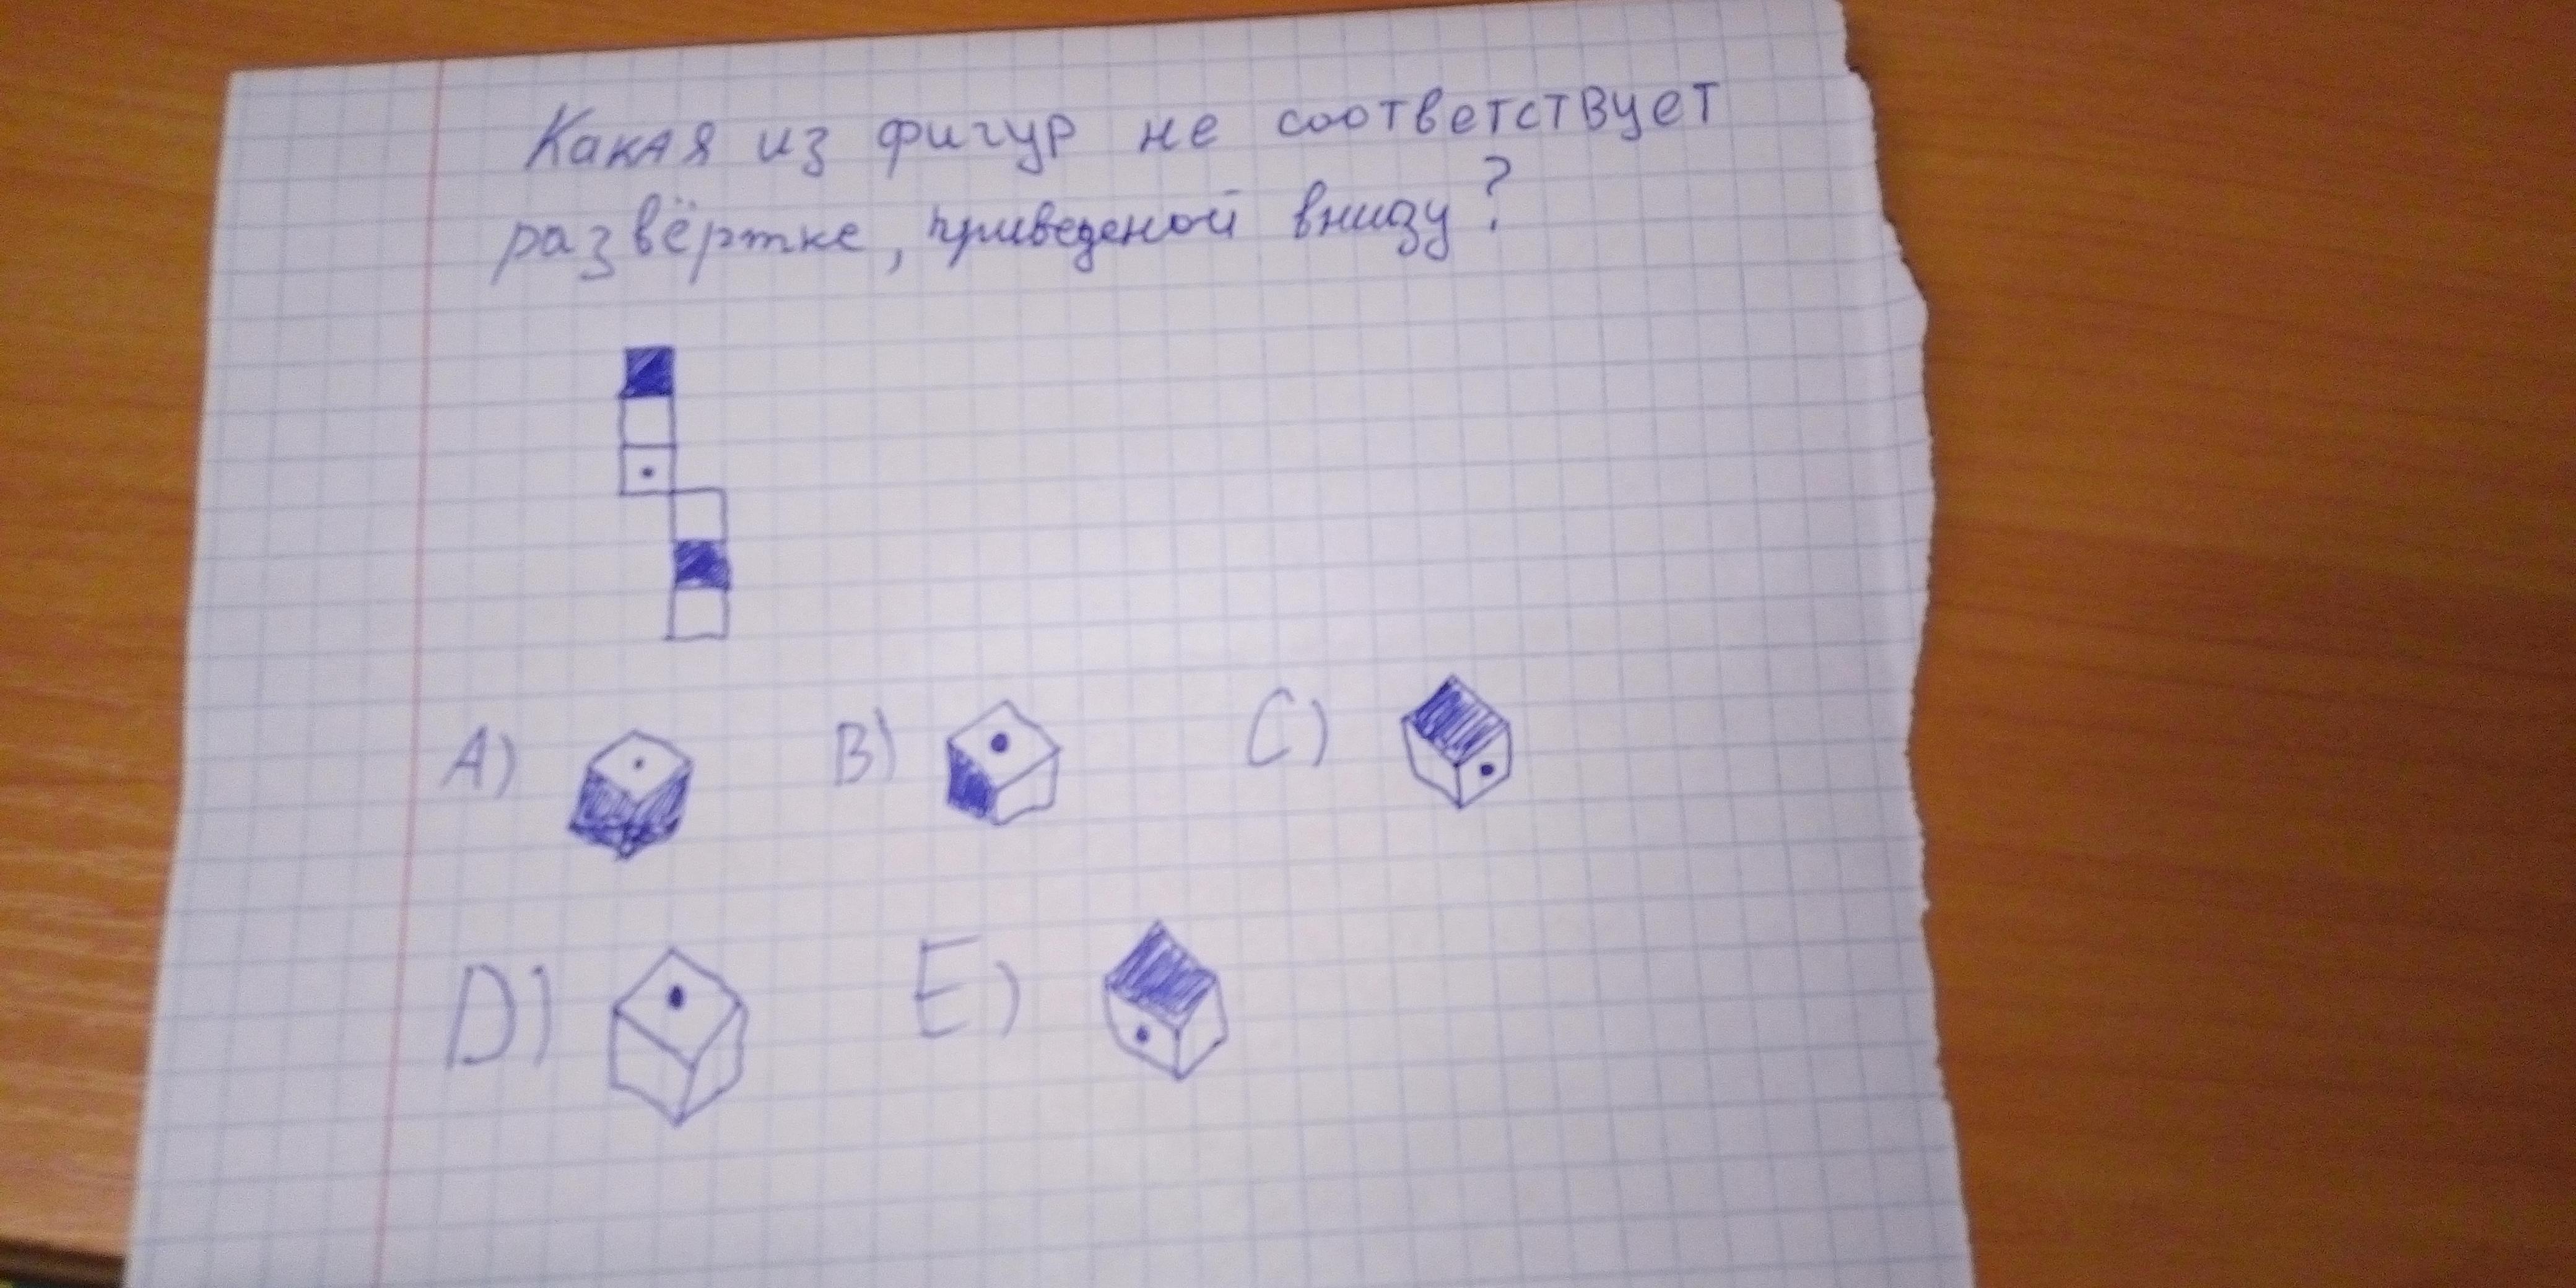 Какая из фигур не соответствует
развёртке, приведеной внизу?
A) B) C)
D) E)